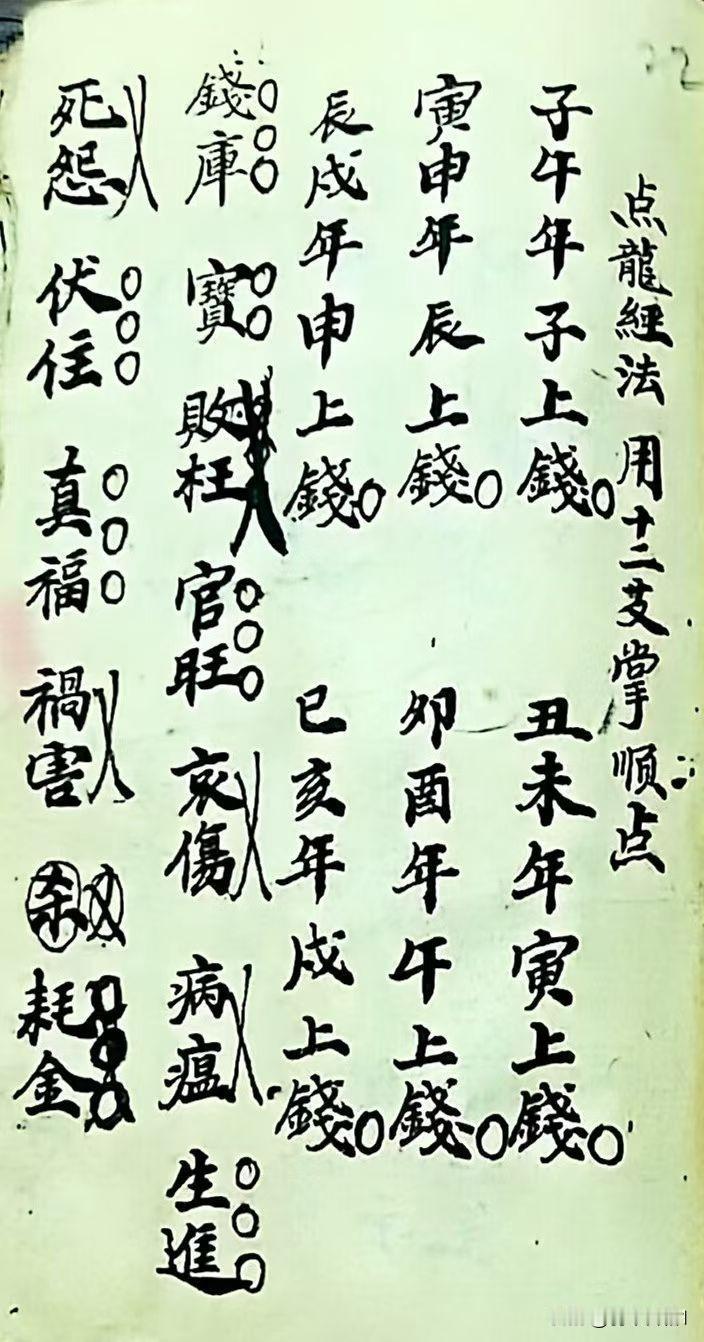 点龍經法 用十二支掌順点
子午年子上錢○ 丑未年寅上錢○
寅申年辰上錢○ 卯酉年午上錢○
辰戌年申上錢○ 巳亥年戌上錢○
錢庫○○○ 寶○○ 敗枉 官旺○○○ 哀傷 病瘟 生進○○○
死怨 伏住○○○ 真福○○○ 禍害 耗金